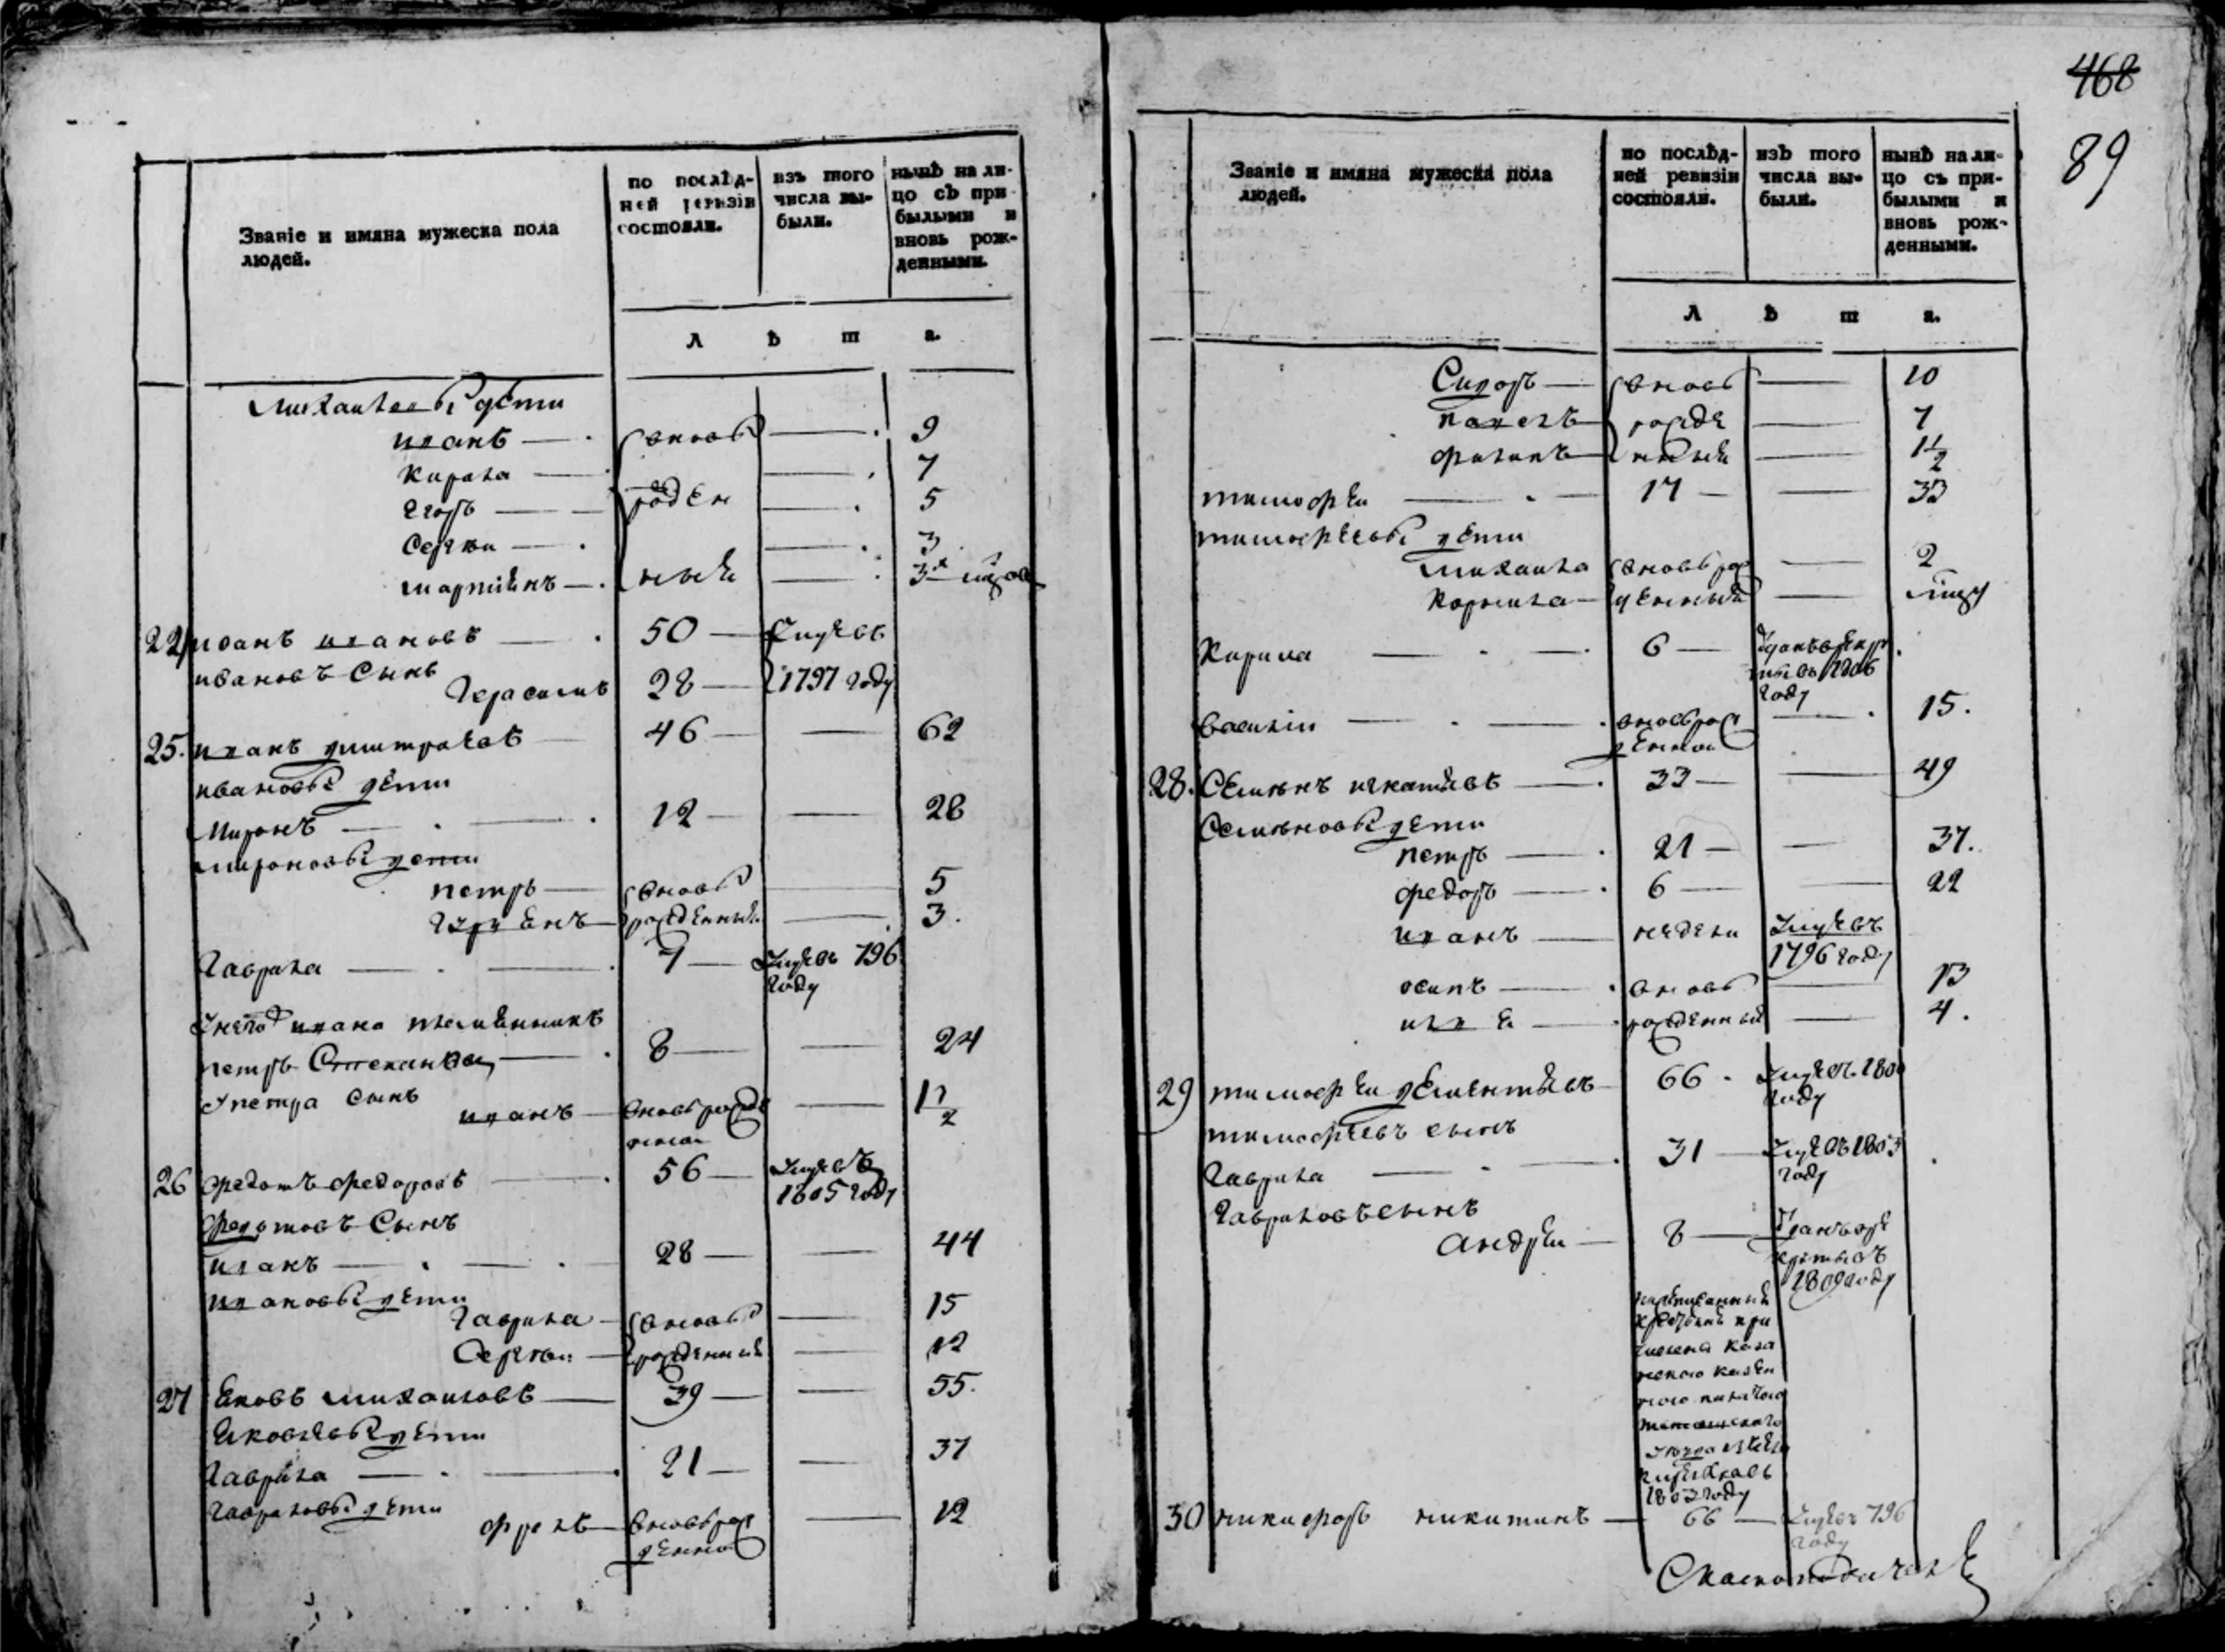 Званіе и имяна мужеска пола
людей.
по послѣд-
ней ревизіи
состояли.
изъ того
числа вы-
были.
нынѣ на ли-
цо съ при
былыми и
вновь рож-
денными.
Л ѣ т а.
Михаиловы дѣти
иванъ — вновь — 9
Кирила — 7
егоръ — рожден — 5
Сергѣи — 3
мартинъ — ныя — 3х
иванъ ивановъ — 50 — Умревъ
ивановъ Сынъ
Герасимъ 28 — 1797 году
25. иванъ дмитреевъ 46 — — 62
ивановы дѣти
Миронъ — 12 — — 28
мироновы дети
петръ — вновь — 5
рожденныя — 3.
Гаврила — 7 — Умревъ 796
году
Унего ивана племянникъ
петръ Степановъ — 8 — — 24
Упетра сынъ
иванъ — вновь рожде — 1 1/2
нной
26 Федотъ федоровъ 56 — Умревъ
1805 году
Федотовъ Сынъ
иванъ — 28 — — 44
ивановы дѣти
Гаврила — вновь — 15
Сергѣи — рожденныя — 12
27 Яковъ михаиловъ — 39 — — 55.
Яковлевы дѣти
Гаврила — 21 — — 37
Гавриловы дѣти
фролъ — вновь рож — 12
денной
468
89
Званіе и имяна мужеска пола
людей.
по послѣд-
ней ревизіи
состояли.
изъ того
числа вы-
были.
нынѣ на ли-
цо съ при-
былыми и
вновь рож-
денными.
Л ѣ т а.
Сидоръ — вновь — 10
павелъ — рожде — 7
филипъ — нныя — 1 1/2
тимофѣи — 17 — — 33
тимофѣевы дѣти
михаила вновь рож — 2
Корнила — денныя
Кирила — 6 —
1806
году
василіи — вновь рож — 15.
денной
28. Семѣнъ игнатьевъ — 33 — — 49
Семѣновы дѣти
петръ — 21 — — 37.
федоръ — 6 — 22
иванъ — недели Умревъ
1796 году
осипъ — вновь — 13
илья — рожденныя — 4.
29 тимофѣи дементьевъ 66 - Умревъ 180
году
тимофѣевъ сынъ
Гаврила — 31 — Умревъ 1803
году
Гавриловъ сынъ
андрѣи — 8 —
1809 году
1803 году
30 никифоръ никитинъ — 66 — Умревъ 796
году